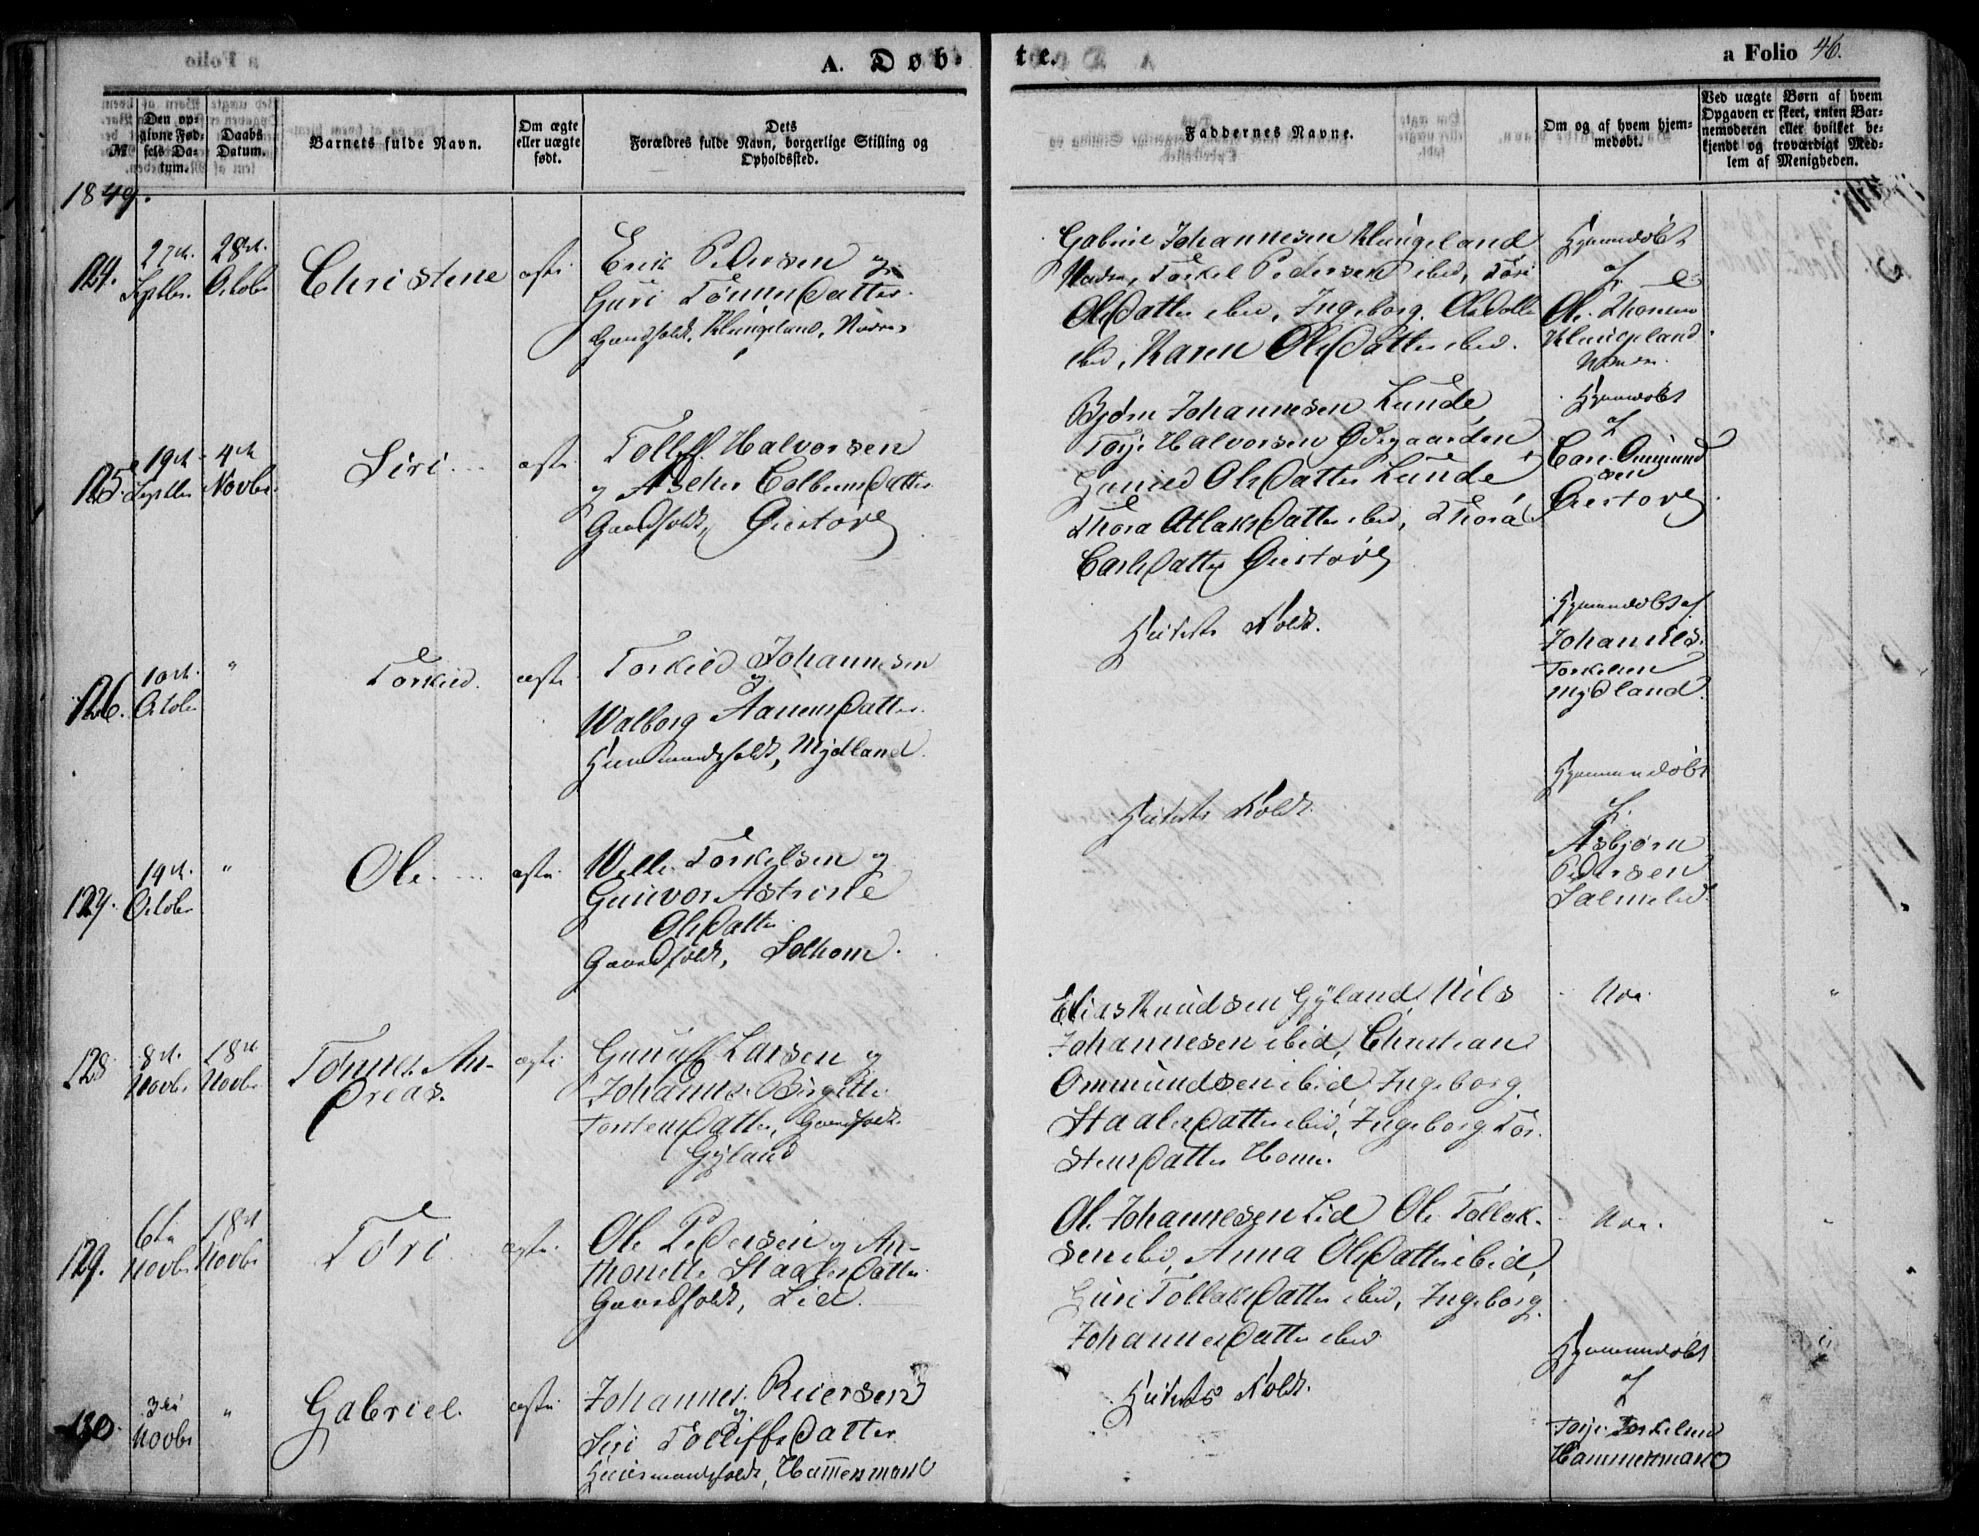 A. Døb-
te.
a Folio 46.
№
Den op-
givne Fød-
sels Da-
tum.
Daabs
Datum.
Barnets fulde Navn.
Om ægte
eller uægte
født.
Dets
Forældres fulde Navn, borgerlige Stilling og
Opholdssted.
Faddernes Navne.
Om og af hvem hjem-
medøbt.
Ved uægte Børn af hvem
Opgaven er skeet, enten Bar-
nemoderen eller hvilket be-
kjendt og troværdigt Med-
lem af Menigheden.
1849.
124.
27de
Septbr.
28de
Octobr
Christene
ægte
Erik Pedersen og
Guri Tønnesdatter
Gaardfolk, Klungeland, Nedre
Gabriel Johannesen Klungeland
Nedre, Torkel Pedersen ibid, Tori
Olsdatter ibid, Ingeborg Olsdatter
ibid, Karen Olsdatter ibid.
Hjemmedøbt
af
Ole Thomsen
Klungeland
125.
19de
Septbr
4de
Novbr.
Siri
ægte
Tollef Halvorsen
og Asche Colbensdatter
Gaardfolk,
Bjørn Johannesen Lunde
Torje Halvorsen Ødegaarden
Gunild Olsdatter Lunde
Thora Atlaksdatter ibid, Thora
Carlsdatter
Hjemmedøbt
af
Carl Omund
sen
126.
10de
Octobr
"
Torkild.
ægte
Torkild Johannesen
og
Walborg Aanensdatter
Huusmandsfolk, Mydland.
Hjemmedøbt af
Johannes
Torkelsen
Mydland.
127.
19de
Octobr
"
Ole
ægte
Torkelsen og
Gunvor Astrine
Olsdatter
Gaardfolk, Solhom.
Hjemmedøbt
af
Asbjørn
Pedersen
128
8de
Novbr
18de
Novbr
Tønnes An-
dreas.
ægte
Gunuf Larsen og
Johanne Birgitte
Torstensdatter, Gaardfolk
Gyland
Elias Knudsen Gyland, Nils
Johannesen ibid, Christian
Ommundsen ibid, Ingeborg
Staalesdatter ibid, Ingeborg Tor-
stensdatter
"
129.
6te
Novbr
18de
Novbr
Tori
ægte
Ole Pedersen og An-
thonette Staalesdatter
Gaardfolk, Lid.
Ole Johannesen Lid Ole Tollak-
sen ibid, Anna Olsdatter ibid,
Guri Tollaksdatter ibid, Ingeborg
Johannesdatter ibid
"
130
3die
Novbr
"
Gabriel.
ægte
Johannes Reiersen
og
Siri Tolleffsdatter
Huusmandsfolk, Hammermark
Hjemmedøbt
af
Torje Torkelsen
Hammermark